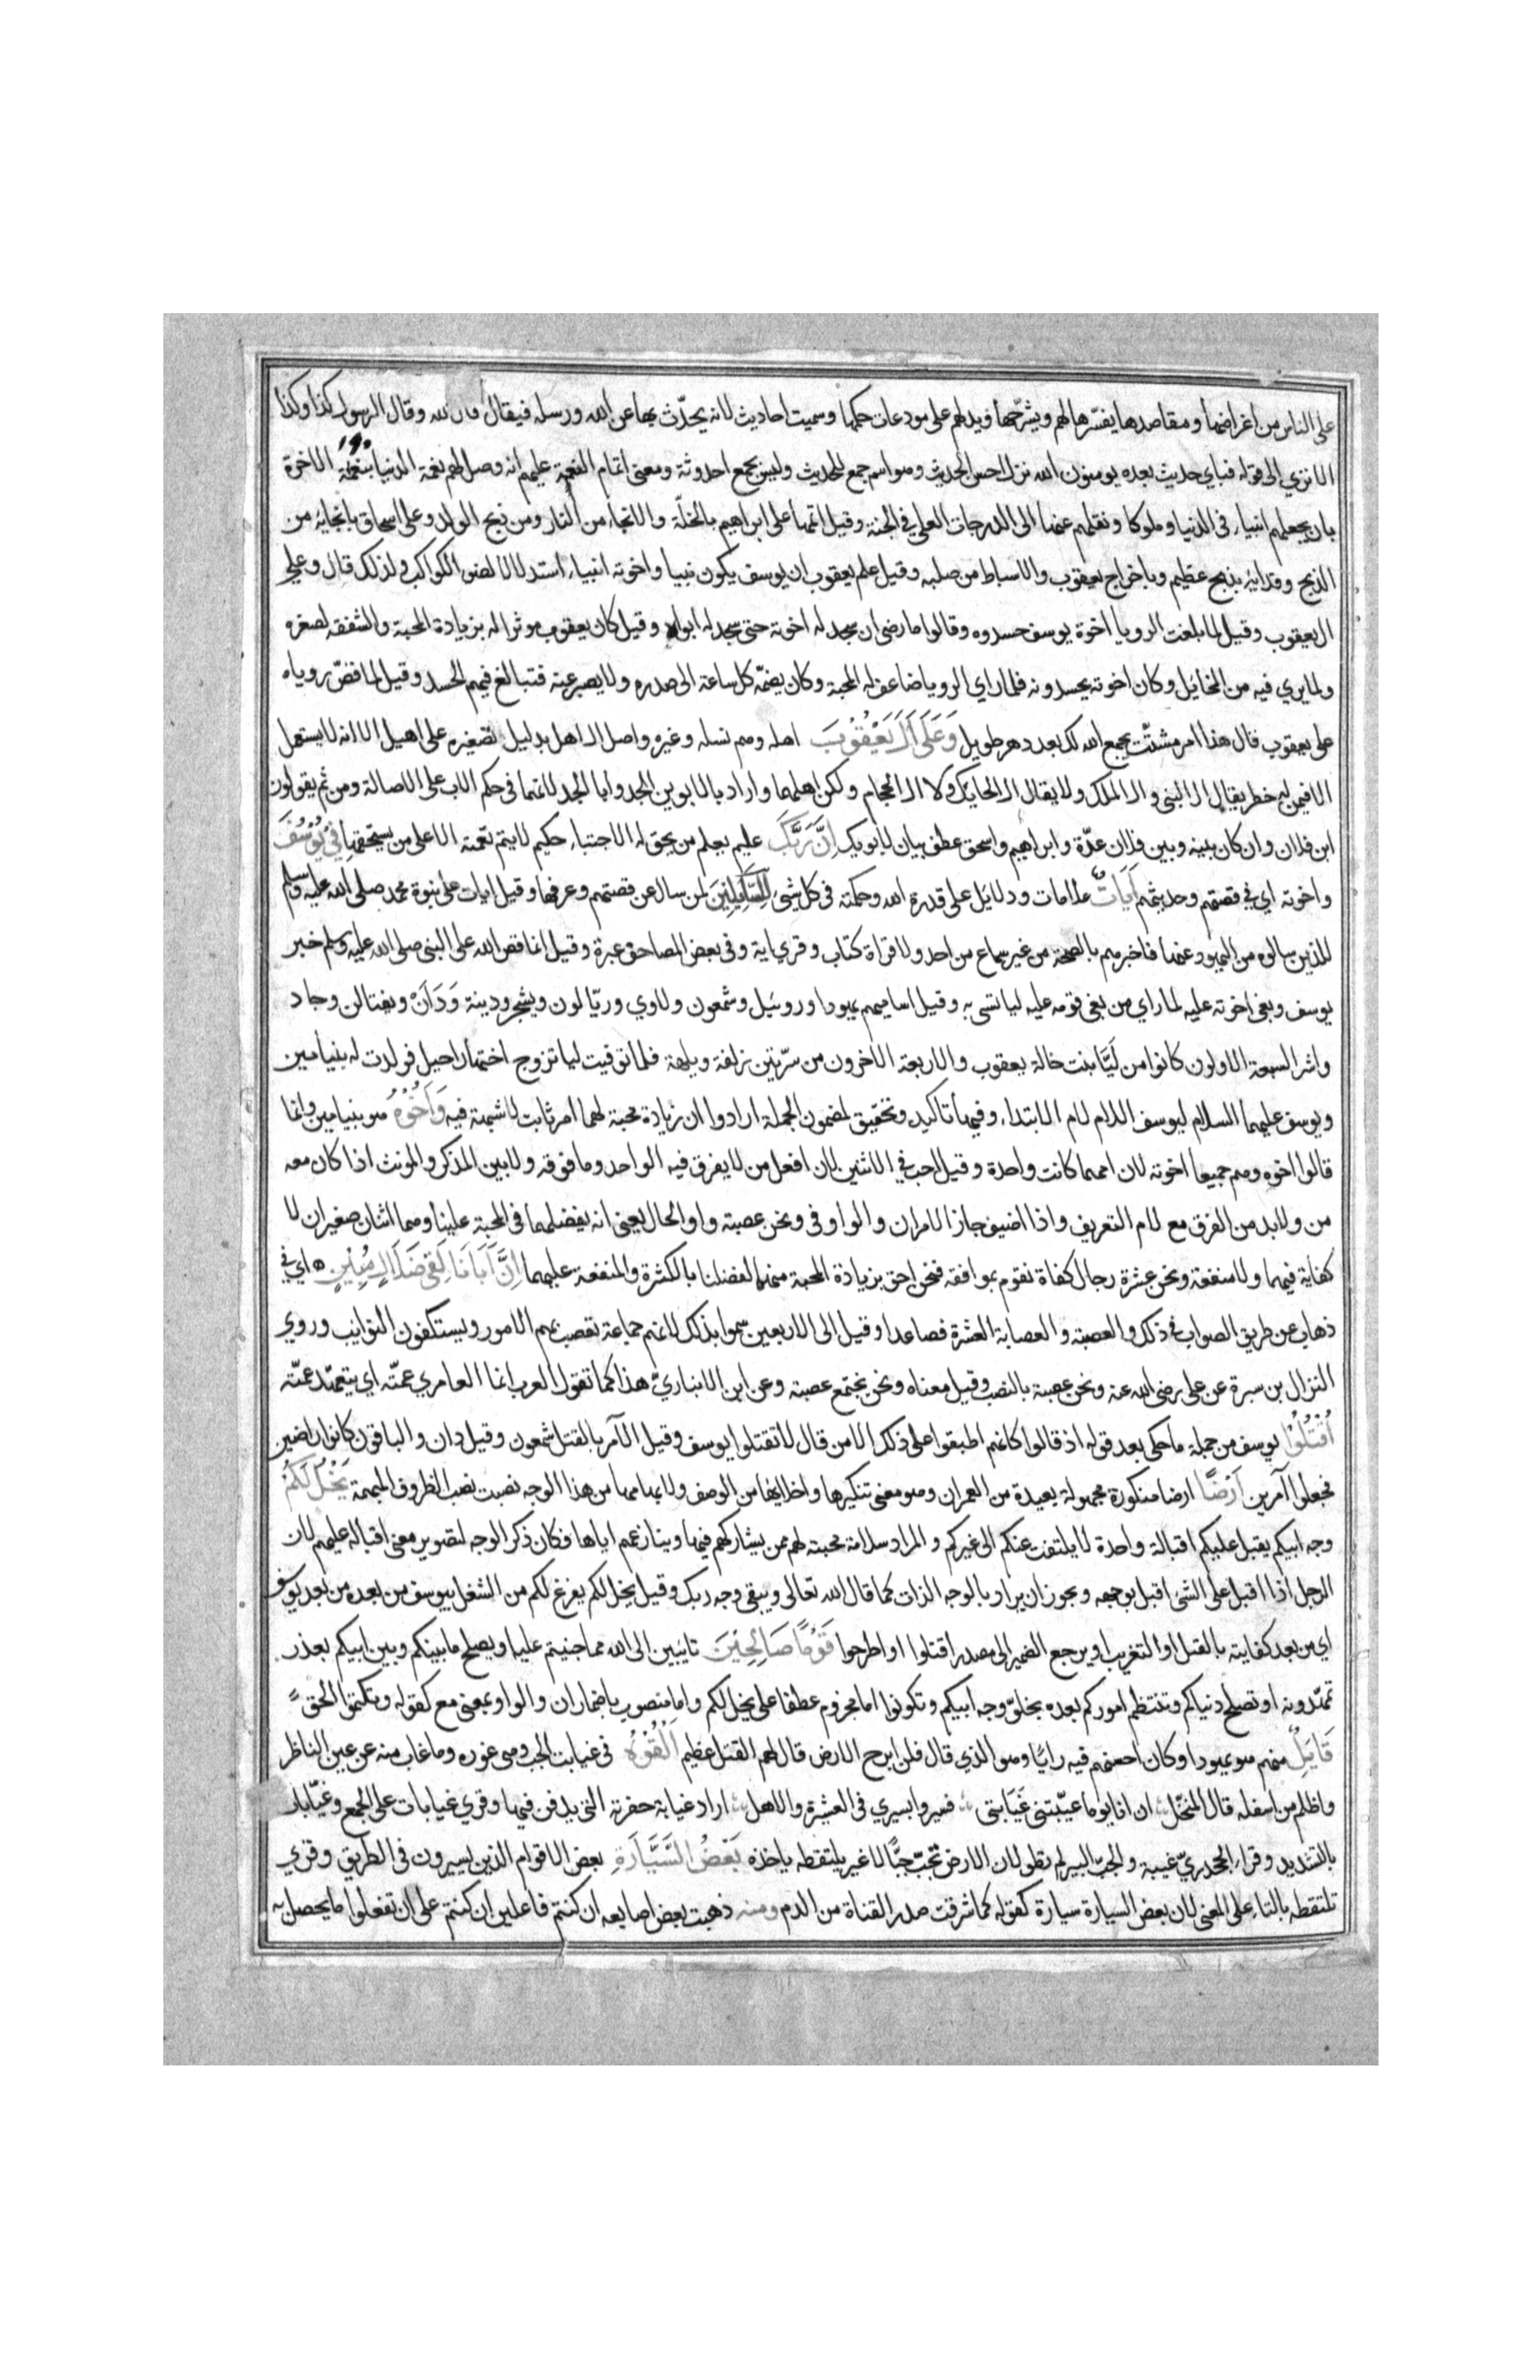 على الناس من اغراضها ومقاصدها يفسّرها لهم ويشرّحها ويدلهم على مودعات حكمها وسميت احاديث لانه يحدّث بها عن الله ورسله فيقال قال الله وقال الرسول كذا وكذا
١٩٠
الا تري الى قوله فباي حديث بعده يومنون الله نزل احسن الحديث وهو اسم جمع للحديث وليس بجمع احدوثة ومعنى اتمام النعمة عليهم انه وصل لهم نعمة الدنيا بنعمة الاخرة
بان يجعلهم انبياء فى الدنيا وملوكا ونقلهم عنها الى الدرجات العلي في الجنة وقيل اتمها على ابراهيم بالخلّة والانجاء من النار ومن ذبح الولد وعلى اسحاق بانجايه من
الذبح وفدايه بذبح عظيم وباخراج يعقوب والاسباط من صلبه وقيل علم يعقوب ان يوسف يكون نبيا واخوته انبياء استدلالا لضوء الكواكب ولذلك قال وعلي
ال يعقوب وقيل لما بلغت الرويا اخوة يوسف حسدوه وقالوا ما رضى ان سجد له اخوته حتى سجد له ابواه وقيل كان يعقوب موثرا له بزيادة المحبة والشفقه لصغره
ولما يري فيه من المخايل وكان اخوته يحسدونه فلما راي الرويا ضاعف له المحبة وكان يضمّه كل ساعة الى صدره ولا يصبر عنه فتبالغ فيهم الحسد وقيل لما قصّ روياه
على يعقوب قال هذا امر مشتّت يجمع الله لك بعد دهر طويل وَعَلَى آلِ يَعْقُوْبَ اهله وهم نسله وغيره واصل ال اهل بدليل تصغيره على اهيل الا انه لا يستعمل
الا فيمن له خطر يقال ال النبى وال الملك ولا يقال ال الحايك ولا ال الحجام ولكن اهلهما واراد بالابوين الجد وابا الجد لانهما فى حكم الاب على الاصالة ومن ثم يقولون
ابن فلان وان كان بينه وبين فلان عدّة وابراهيم واسحق عطف بيان لابويك اِنَّ رَبَّكَ عليم يعلم من يحق له الاجتباء حكيم لا يتم نعمته الا على من يستحقها فِيْ يُوْسُفَ
واخوته اي في قصتهم وحديثهم آيَاتٌ علامات ودلايل على قدرة الله وحكمته فى كل شئ لِلسَّآئِلِيْنَ لمن سال عن قصتهم وعرفها وقيل ايات على نبوة محمد صلى الله عليه وسلم
للذين سالوه من اليهود عنها فاخبرهم بالصحة من غير سماع من احد ولا قراة كتاب وقري اية وفى بعض المصاحف عبرة وقيل انما قص الله على النبى صلى الله عليه وسلم خبر
يوسف وبغى اخوته عليه لما راي من بغى قومه عليه ليا تسى به وقيل اساميهم يهودا وروبيل وشمعون ولاوي وربّالون ويشجر ودينة وَدَانْ ونفتالن وجاد
واشر السبعة الاولون كانوا من لَيَّا بنت خالة يعقوب والاربعة الاخرون من سرّيتين زلفة وبلهة فلما توقيت ليا تزوج اختها راحيل فولدت له بنيامين
ويوسف عليهما السلام ليوسف اللام لام الابتداء وفيها تاكيد وتحقيق لمضمون الجملة ارادوا ان زيادة محبة لهما امر ثابت لا شبهة فيه وَاَخُوْهُ هو بنيامين وانما
قالوا اخوه وهم جميعا اخوته لان امهما كانت واحدة وقيل احب في الاثنين لان افعل من لا يفرق فيه الواحد وما فوقه ولا بين المذكر والمونث اذا كان معه
من ولا بد من الفرق مع لام التعريف واذا اضيف جاز الامران والواو فى ونحن عصبة واو الحال يعنى انه يفضلهما فى المحبة علينا وهما اثنان صغيران لا
كفاية فيهما ولا منفعة ونحن عشرة رجال كفاة نقوم بموافقه فنحن احق بزيادة المحبة منهما لفضلنا بالكثرة والمنفعة عليهما اِنَّ اَبَانَا لَفِى ضَلَالٍ مُبِيْنٍ ه اي في
ذهاب عن طريق الصواب فى ذلك والعصبة والعصابة العشرة فصاعدا وقيل الى الاربعين سموا بذلك لانهم جماعة تعصب بهم الامور ويستكفون النوايب وروي
النزال بن سبرة عن على رضى الله عنه ونحن عصبة بالنصب وقيل معناه ونحن نجتمع عصبة وعن ابن الانباريّ هذا كما تقول العرب انما العامري عمّته اي يتعهّد عمّته
اُقْتُلُوْا يوسف من جملة ما حكى بعد قوله اذ قالوا كانهم اطبقوا على ذلك الا من قال لا تقتلوا يوسف وقيل الآمر بالقتل شمعون وقيل دان والباقون كانوا راضين
فجعلوا آمرين اَرْضًا ارضا منكورة مجهولة بعيدة من العمران وهو معنى تنكيرها واخلايها من الوصف ولابهامها من هذا الوجه نصبت نصب الظروف المبهمة يَخْلُ لَكُمْ
وجه ابيكم يقبل عليكم اقبالة واحدة لا يلتفت عنكم الى غيركم والمراد سلامة محبته لهم ممن يشاركهم فيها وينازعهم اياها فكان ذكر الوجه لتصوير معنى اقباله عليهم لان
الرجل اذا اقبل على الشى اقبل بوجهه ويجوز ان يراد بالوجه الذات كما قال الله تعالى ويبقى وجه ربك وقيل يخل لكم يفرغ لكم من الشغل بيوسف من بعده من بعد يوسف
اي من بعد كفايته بالقتل او التغريب او يرجع الضمير الى مصدر اقتلوا او اطرحوا قَوْمًا صَالِحِيْنَ تايبين الى الله مما جنيتم عليه او يصلح ما بينكم وبين ابيكم بعذر
تمهّدونه او تصلح دنياكم وتنتظم اموركم بعده بخلوّ وجه ابيكم وتكونوا اما مجزوم عطفا على يخل لكم واما منصوب باضمار ان والواو بمعنى مع كقوله وتكتموا الحق
قَايِلٌ منهم هو يهودا وكان احسنهم فيه رايًا وهو الذي قال فلن ابرح الارض قال لهم القتل عظيم اَلْقُوْهُ فى غيابت الجب وهى غوره وما غاب منه عن عين الناظر
واظلم من اسفله قال المنخّل ان انا يوما غيّبتنى غَيَابتى فسيروا بسيري فى العشيرة والاهل اراد غيابة حفرته التى يدفن فيها وقري غيابات على الجمع وغيّابات
بالتشديد وقراء الجحدريّ غيبة والجبّ البير لم تطو لان الارض تجبّ جبًّا لا غير يلتقطه ياخذه بَعْضُ السَّيَّارَةِ بعض الاقوام الذين يسيرون فى الطريق وقري
تلتقطه بالتاء على المعنى لان بعض السيارة سيارة كقوله كما شرقت صدر القناة من الدم ومنه ذهبت بعض اصابعه ان كنتم فاعلين ان كنتم على ان تفعلوا ما يحصل به